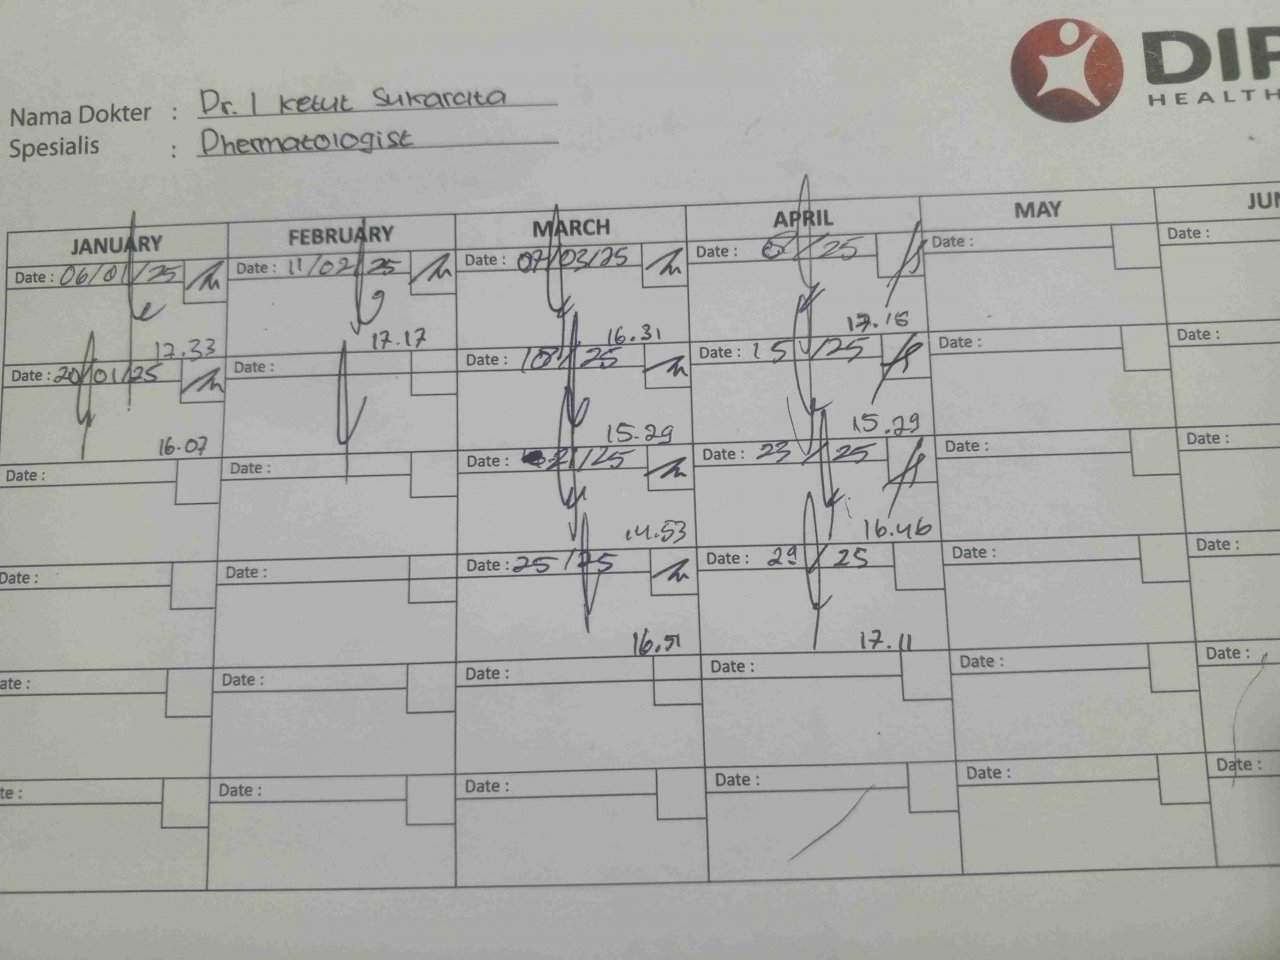 DIP
HEALTH
Nama Dokter : Dr. I Ketut Sukardita
Spesialis : Dhermatologist
JANUARY FEBRUARY MARCH APRIL MAY JUN
Date : 06/01/25 Date : 11/02/25 Date : 07/03/25 Date : /25 Date : Date :
17.33 17.17 16.31 17.15
Date : 20/01/25 Date : Date : 18/25 Date : 15/25 Date : Date :
16.07 15.29 15.29
Date : Date : Date : 21/25 Date : 23/25 Date : Date :
14.53 16.46
Date : Date : Date : 25/25 Date : 29/25 Date : Date :
16.51 17.11
ate : Date : Date : Date : Date : Date :
te : Date : Date : Date : Date : Date :